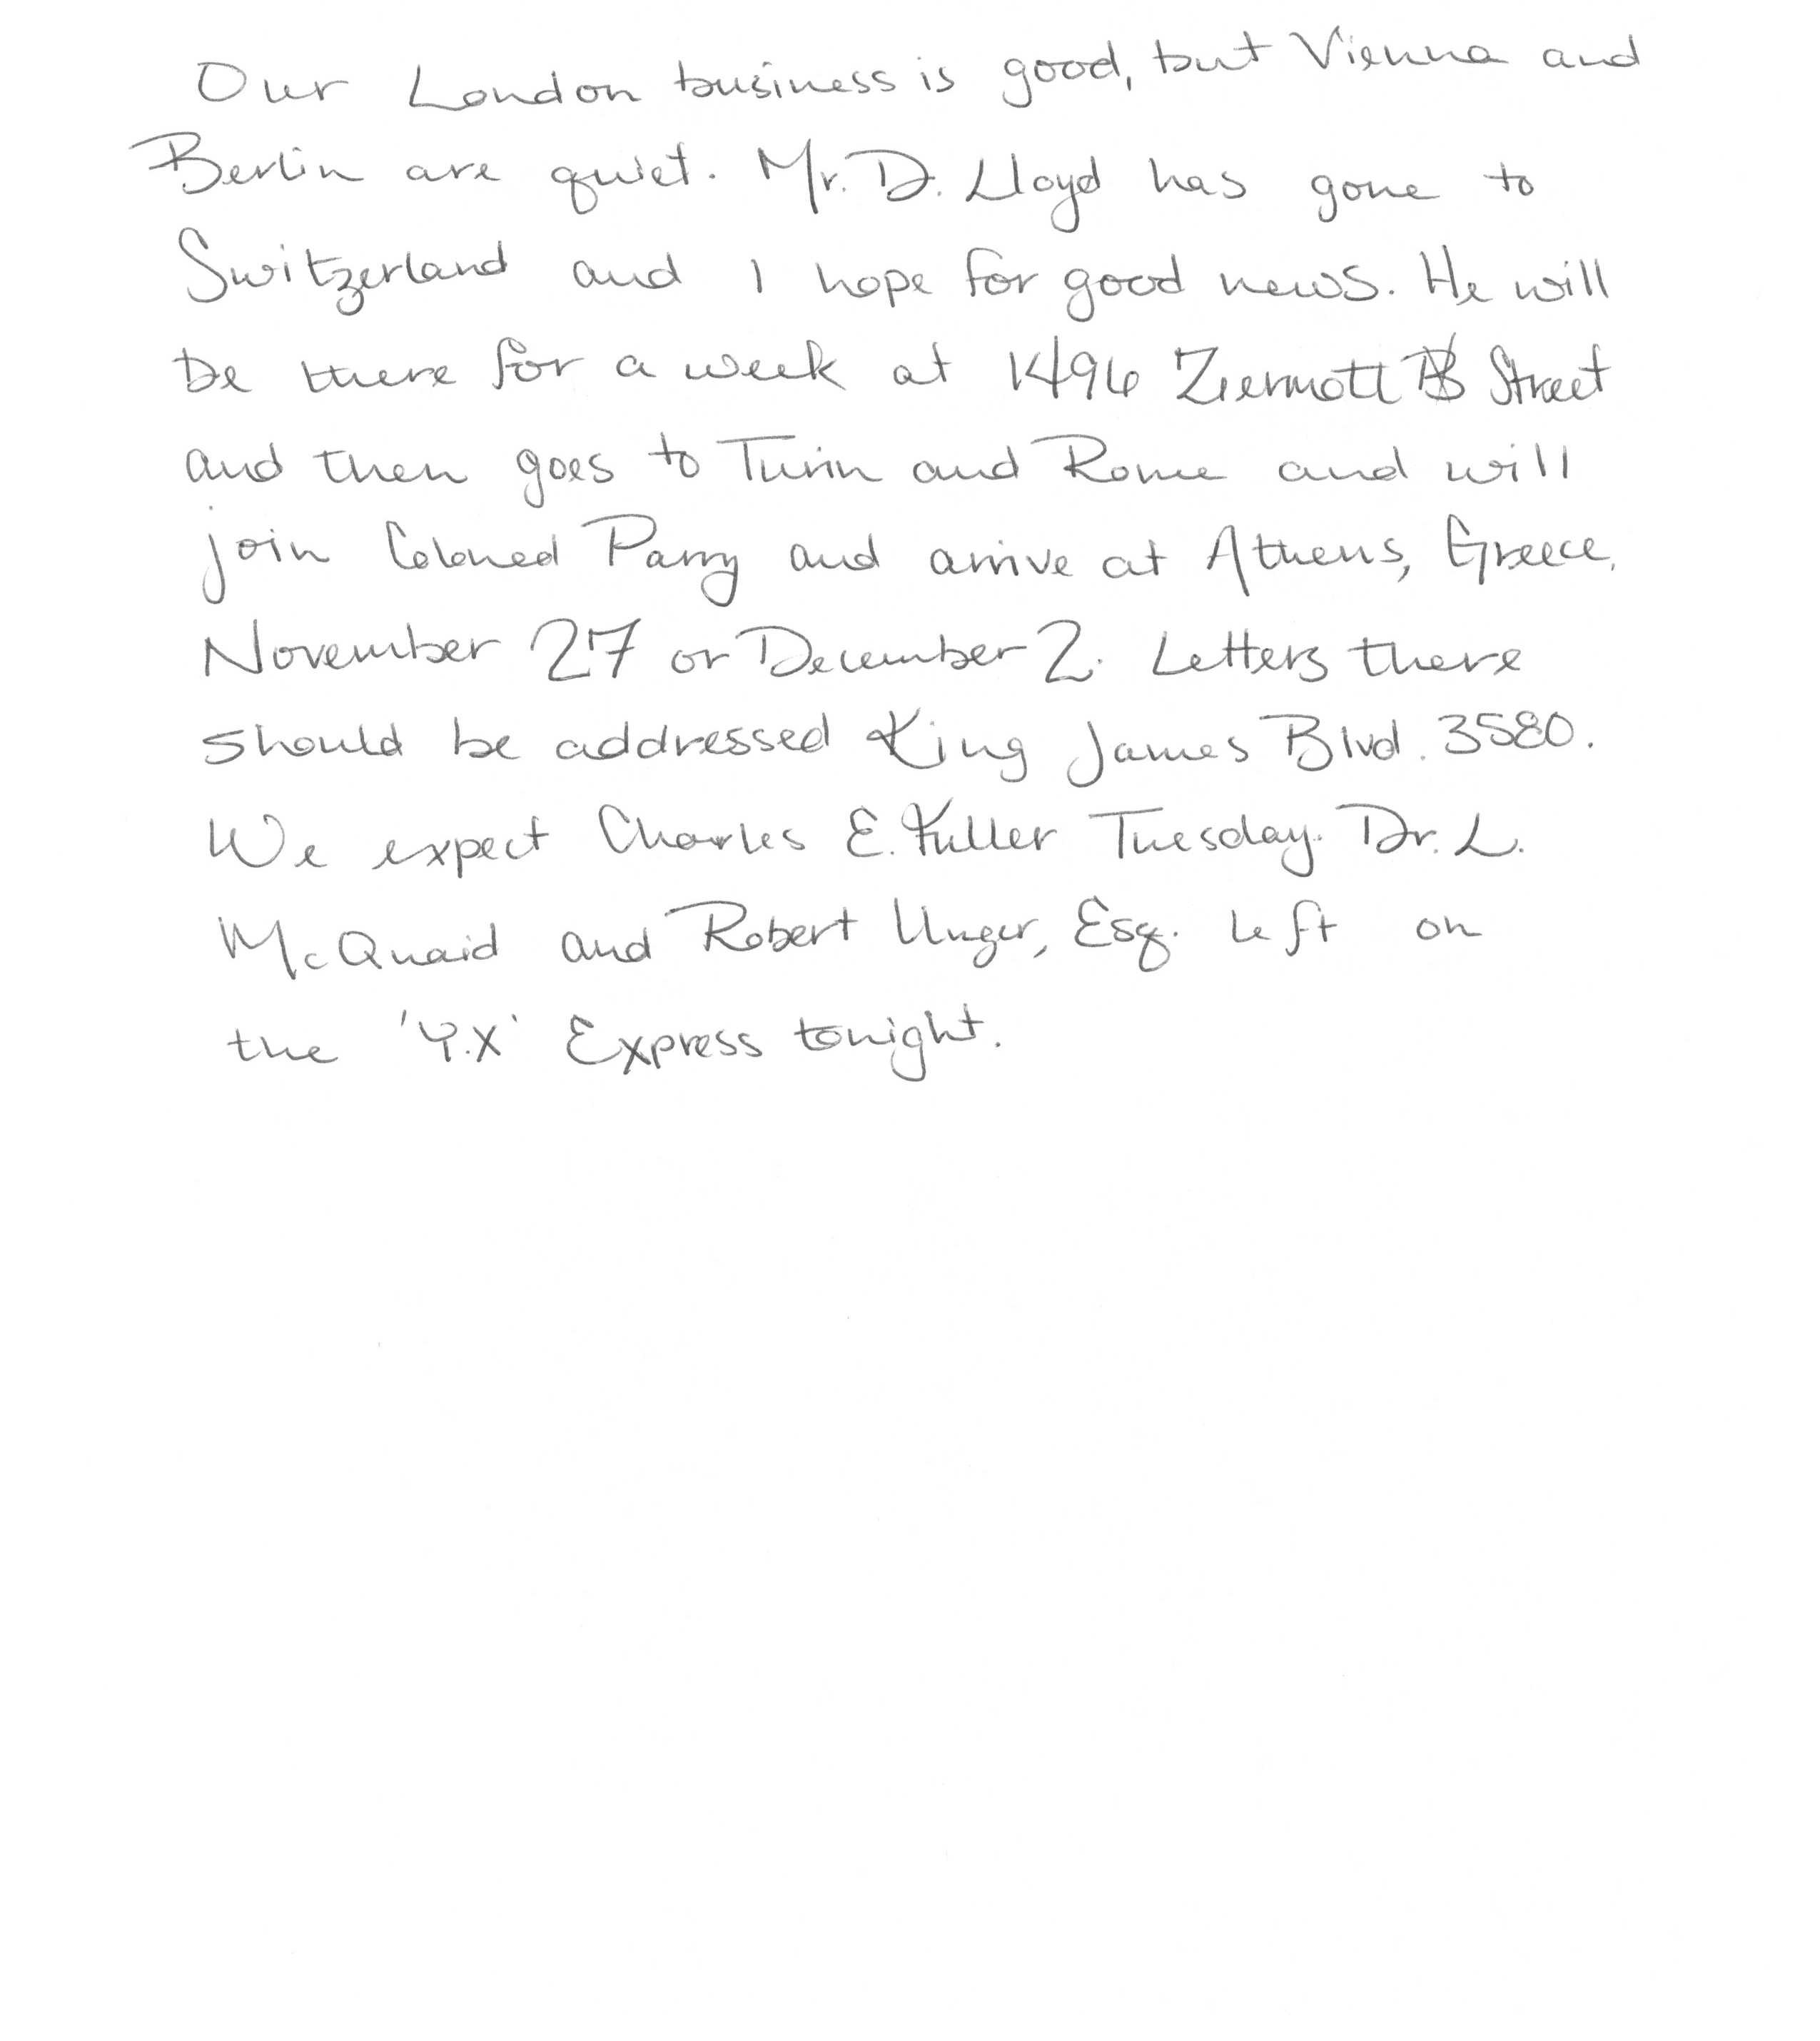 Our London business is good, but Vienna and
Berlin are quiet. Mr. D. Lloyd has gone to
Switzerland and I hope for good news. He will
be there for a week at 1496 Zermott Street
and then goes to Turin and Rome and will
join Colonel Parry and arrive at Athens, Greece,
November 27 or December 2. Letters there
should be addressed King James Blvd. 3580.
We expect Charles E. Fuller Tuesday. Dr. L.
McQuaid and Robert Unger, Esq. left on
the 'Y.X' Express tonight.